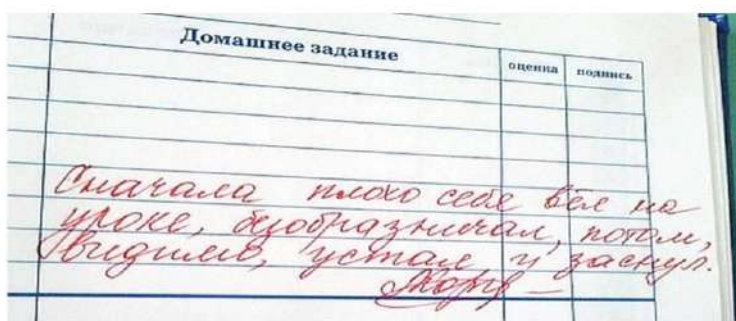 Домашнее задание
оценка
подпись
Сначала плохо себя вёл на
уроке, безобразничал, потом,
видимо, устал и заснул.